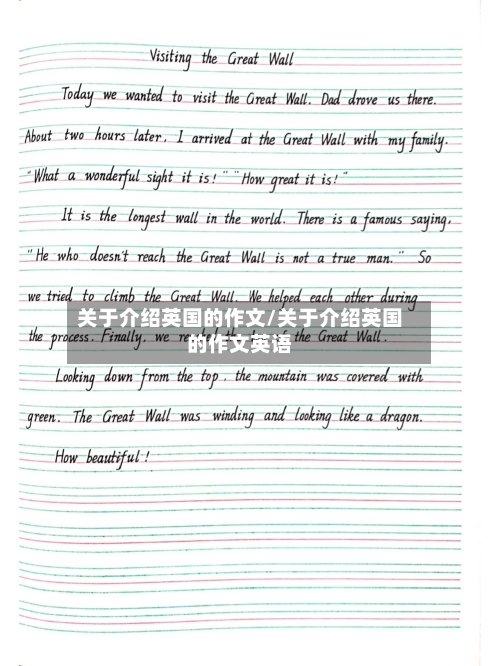 Visiting the Great Wall
Today we wanted to visit the Great Wall. Dad drove us there.
About two hours later, I arrived at the Great Wall with my family.
"What a wonderful sight it is!" "How great it is!"
It is the longest wall in the world. There is a famous saying,
"He who doesn't reach the Great Wall is not a true man." So
we tried to climb the Great Wall. We helped each other during
关于介绍英国的作文/关于介绍英国
the process. Finally, we the Great Wall.
的作文英语
Looking down from the top, the mountain was covered with
green. The Great Wall was winding and looking like a dragon.
How beautiful!